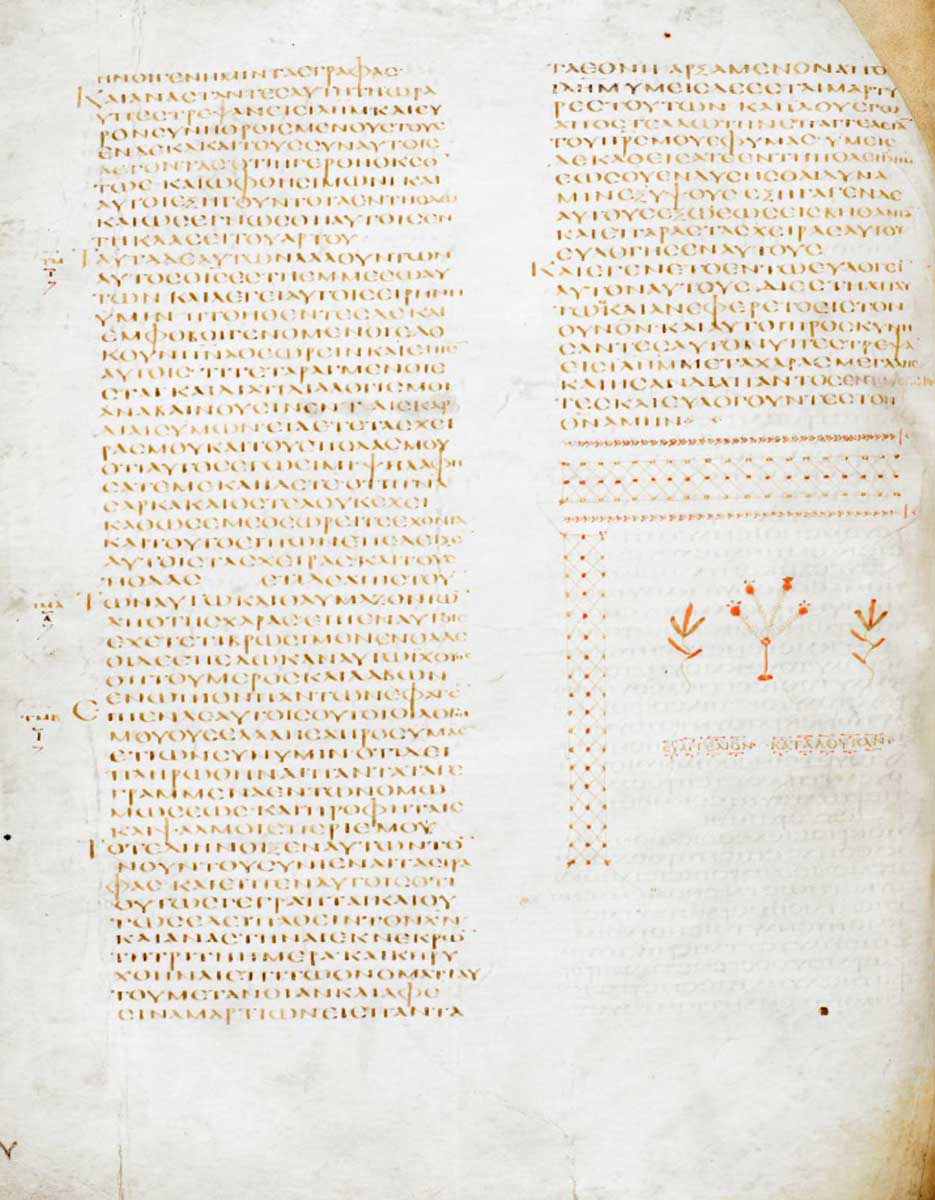 ΗΝΟΙΓΕΝΗΜΙΝΤΑΣΓΡΑΦΑΣ·
ΚΑΙΑΝΑΣΤΑΝΤΕΣΑΥΤΗΤΗΩΡΑ
ΥΠΕΣΤΡΕΨΑΝΕΙΣΙΛΗΜ·ΚΑΙΕΥ
ΡΟΝΣΥΝΗΘΡΟΙΣΜΕΝΟΥΣΤΟΥΣ
ΕΝΔΕΚΑΚΑΙΤΟΥΣΣΥΝΑΥΤΟΙΣ
ΛΕΓΟΝΤΑΣΟΤΙΗΓΕΡΘΗΟΚΣΟ̅
ΤΩΣ·ΚΑΙΩΦΘΗΣΙΜΩΝΙ·ΚΑΙ
ΑΥΤΟΙΕΞΗΓΟΥΝΤΟΤΑΕΝΤΗΟΔΩ
ΚΑΙΩΣΕΓΝΩΣΘΗΑΥΤΟΙΣΕΝ
ΤΗΚΛΑΣΕΙΤΟΥΑΡΤΟΥ
ΤΜ
ΤΑΥΤΑΔΕΑΥΤΩΝΛΑΛΟΥΝΤΩΝ
ΑΥΤΟΣΟΙΣΕΣΤΗΕΜΜΕΣΩΑΥ
ΤΩΝ·ΚΑΙΛΕΓΕΙΑΥΤΟΙΣΕΙΡΗΝΗ
ΥΜΙΝ·ΠΤΟΗΘΕΝΤΕΣΔΕΚΑΙ
ΕΜΦΟΒΟΙΓΕΝΟΜΕΝΟΙΕΔΟ
ΚΟΥΝΠΝΑΘΕΩΡΕΙΝ·ΚΑΙΕΙΠΕ̅
ΑΥΤΟΙΣ·ΤΙΤΕΤΑΡΑΓΜΕΝΟΙΕ
ΣΤΑΙ·ΚΑΙΔΙΑΤΙΔΙΑΛΟΓΙΣΜΟΙ
ΑΝΑΒΑΙΝΟΥΣΙΝΕΝΤΑΙΣΚΑΡ
ΔΙΑΙΣΥΜΩΝ·ΕΙΔΕΤΕΤΑΣΧΕΙ
ΡΑΣΜΟΥΚΑΙΤΟΥΣΠΟΔΑΣΜΟΥ
ΟΤΙΑΥΤΟΣΕΓΩΕΙΜΙ·ΨΗΛΑΦΗ
ΣΑΤΕΜΕΚΑΙΙΔΕΤΕΟΤΙΠΝΑ
ΣΑΡΚΑΚΑΙΟΣΤΕΑΟΥΚΕΧΕΙ
ΚΑΘΩΣΕΜΕΘΕΩΡΕΙΤΕΕΧΟΝΤΑ
ΚΑΙΤΟΥΤΟΕΙΠΩΝΕΠΕΔΕΙΞΕ̅
ΑΥΤΟΙΣΤΑΣΧΕΙΡΑΣΚΑΙΤΟΥΣ
ΠΟΔΑΣ ΕΤΙΔΕΑΠΙΣΤΟΥ
ΤΜΑ
ΤΩΝΑΥΤΩΚΑΙΘΑΥΜΑΖΟΝΤΩ̅
ΑΠΟΤΗΣΧΑΡΑΣΕΙΠΕΝΑΥΤΟΙΣ
ΕΧΕΤΕΤΙΒΡΩΣΙΜΟΝΕΝΘΑΔΕ
ΟΙΔΕΕΠΕΔΩΚΑΝΑΥΤΩΙΧΘΥΟΣ
ΟΠΤΟΥΜΕΡΟΣΚΑΙΛΑΒΩΝ
ΕΝΩΠΙΟΝΠΑΝΤΩΝΕΦΑΓΕ̅
ΤΜΒ
ΕΙΠΕΝΔΕΑΥΤΟΙΣΟΥΤΟΙΟΙΛΟΓΟΙ
ΜΟΥΟΥΣΕΛΑΛΗΣΑΠΡΟΣΥΜΑΣ
ΕΤΙΩΝΣΥΝΥΜΙΝΟΤΙΔΕΙ
ΠΛΗΡΩΘΗΝΑΙΠΑΝΤΑΤΑΓΕ
ΓΡΑΜΜΕΝΑΕΝΤΩΝΟΜΩ
ΜΩΣΕΩΣ·ΚΑΙΠΡΟΦΗΤΑΙΣ
ΚΑΙΨΑΛΜΟΙΣΠΕΡΙΕΜΟΥ
ΤΟΤΕΔΙΗΝΟΙΞΕΝΑΥΤΩΝΤΟ̅
ΝΟΥΝΤΟΥΣΥΝΙΕΝΑΙΤΑΣΓΡΑ
ΦΑΣ·ΚΑΙΕΙΠΕΝΑΥΤΟΙΣΟΤΙ
ΟΥΤΩΣΓΕΓΡΑΠΤΑΙ·ΚΑΙΟΥ
ΤΩΣΕΔΕΙΠΑΘΕΙΝΤΟΝΧΝ
ΚΑΙΑΝΑΣΤΗΝΑΙΕΚΝΕΚΡΩ̅
ΤΗΤΡΙΤΗΗΜΕΡΑΚΑΙΚΗΡΥ
ΧΘΗΝΑΙΕΠΙΤΩΟΝΟΜΑΤΙΑΥ
ΤΟΥΜΕΤΑΝΟΙΑΝΚΑΙΑΦΕ
ΣΙΝΑΜΑΡΤΙΩΝΕΙΣΠΑΝΤΑ
ΤΑΕΘΝΗ·ΑΡΞΑΜΕΝΟΝΑΠΟ
ΙΛΗΜΥΜΕΙΣΔΕΕΣΤΑΙΜΑΡΤΥ
ΡΕΣΤΟΥΤΩΝ·ΚΑΙΙΔΟΥΕΓΩ
ΑΠΟΣΤΕΛΛΩΤΗΝΕΠΑΓΓΕΛΙΑ̅
ΤΟΥΠΡΣΜΟΥΕΦΥΜΑΣ·ΥΜΕΙΣ
ΔΕΚΑΘΕΙΣΑΤΕΕΝΤΗΠΟΛΕΙ
ΕΩΣΟΥΕΝΔΥΣΗΣΘΑΙΔΥΝΑ
ΜΙΝΕΞΥΨΟΥΣΕΞΗΓΑΓΕΝΔΕ
ΑΥΤΟΥΣΕΞΩΕΩΣΕΙΣΒΗΘΑΝΙΑ
ΚΑΙΕΠΑΡΑΣΤΑΣΧΕΙΡΑΣΑΥΤΟΥ
ΕΥΛΟΓΗΣΕΝΑΥΤΟΥΣ
ΚΑΙΕΓΕΝΕΤΟΕΝΤΩΕΥΛΟΓΕΙ̅
ΑΥΤΟΝΑΥΤΟΥΣ·ΔΙΕΣΤΗΑΠΑΥ
ΤΩ̅ΚΑΙΑΝΕΦΕΡΕΤΟΕΙΣΤΟΝ
ΟΥΝΟΝ·ΚΑΙΑΥΤΟΙΠΡΟΣΚΥΝΗ
ΣΑΝΤΕΣΑΥΤΟΝΥΠΕΣΤΡΕΨΑ̅
ΕΙΣΙΛΗΜΜΕΤΑΧΑΡΑΣΜΕΓΑΛΗΣ
ΚΑΙΗΣΑΝΔΙΑΠΑΝΤΟΣΕΝ
ΤΕΣΚΑΙΕΥΛΟΓΟΥΝΤΕΣΤΟΝ
ΘΝΑΜΗΝ